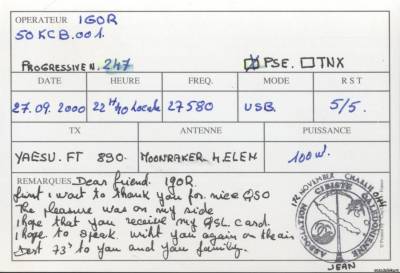 OPERATEUR IGOR
50 KCB.001.
PROGRESSIVE N. 247 PSE. TNX
DATE HEURE FREQ. MODE R S T
27.09.2000 22H40 Locale 27580 USB. 5/5.
TX ANTENNE PUISSANCE
YAESU. FT 890. MOONRAKER 4 ELEM 100W.
REMARQUES Dear friend. IGOR.
first i want to thank you for nice QSO
The pleasure was on my side
i hope that you receive my QSL card.
i hope to speak with you again on the air
Best 73' to you and you family.
NOVEMBER CHARLIE
ASSOCIATION CALEDONIENNE
JEAN